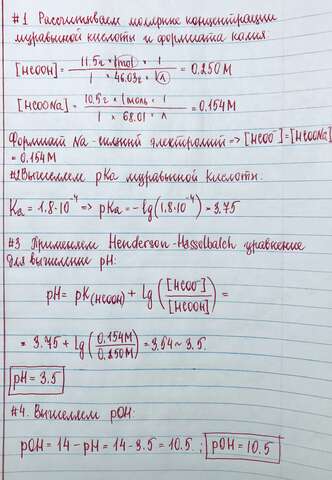 #1 Рассчитываем молярные концентрации
муравьиной кислоты и формиата калия.
[HCOOH] = 11.5г * 1mol * 1 / 1 * 46.03г * 1л = 0.250 M
[HCOONa] = 10.5г * 1моль * 1 / 1 * 68.01 * л = 0.154 M
Формиат Na - сильный электролит => [HCOO⁻] = [HCOONa]
= 0.154 M
#2 Вычисляем pKa муравьиной кислоты.
Ka = 1.8·10⁻⁴ => pKa = -lg(1.8·10⁻⁴) = 3.75
#3 Применяем Henderson-Hasselbalch уравнение
для вычисление pH:
pH = pK(HCOOH) + lg([HCOO⁻]/[HCOOH]) =
= 3.75 + lg(0.154M/0.250M) = 3.54 ~ 3.5.
pH = 3.5
#4. Вычисляем pOH:
pOH = 14 - pH = 14 - 3.5 = 10.5 ; pOH = 10.5